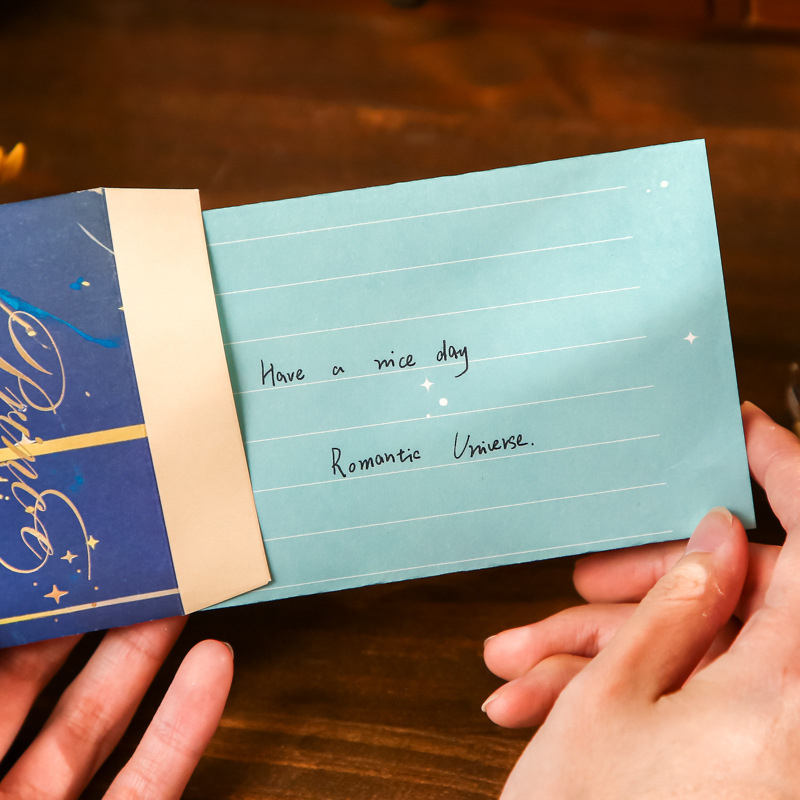 Have a nice day
Romantic Universe.